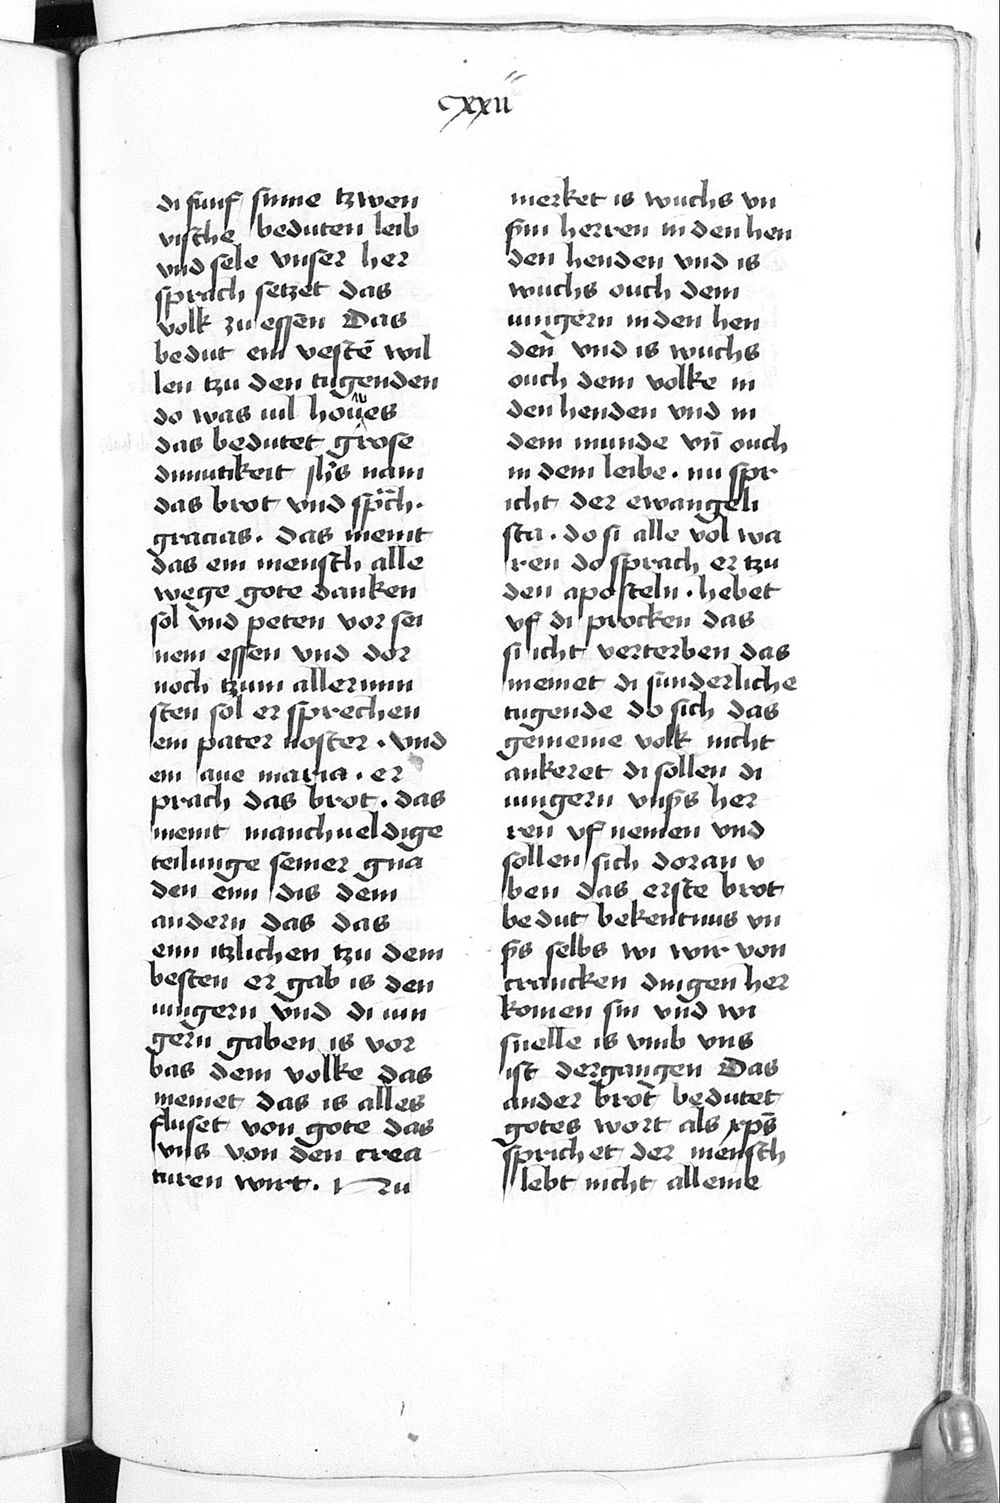 cxxii
di funf sinne tzwen
vische beduten leib
vnd sele vnser her
sprach setzet das
volk zu essen Das
bedut ein vestē wil
len tzu den tugenden
do was uil houes
das bedutet grose
dimutikeit jhs nam
das brot vnd sp̄ch.
gracias. das meint
das ein mensch alle
wege gote danken
sol vnd peten vor sei
nem essen vnd dor
noch tzum allermin
sten sol er sprechen
ein pater noster. vnd
ein aue maria. er
prach das brot. das
meint manchueldige
teilunge seiner gna
den eim dis dem
andern das das
eim itzlichen tzu dem
besten er gab is den
iungern vnd di iun
gern gaben is vor
bas dem volke das
meinet das is alles
fluset von gote das
vns von den crea
turen wirt. Nu
merket is wuchs vn
s̄m herren in den hen
den henden vnd is
wuchs ouch dem
iungern in den hen
den vnd is wuchs
ouch dem volke in
den henden vnd in
dem munde vn̄ ouch
in dem leibe. nu spr
icht der ewangeli
sta. do si alle vol wa
ren do sprach er tzu
den aposteln. hebet
vf di procken das
si icht verterben das
meinet di sunderliche
tugende do sich das
gemeine volk nicht
ankeret di sollen di
iungern vns̄s her
ren vf nemen vnd
sollen sich doran v
ben das erste brot
bedut bekentnus vn
s̄s selbs wi wir von
crancken dingen her
komen sin vnd wi
snelle is vmb vns
ist dergangen Das
ander brot bedutet
gotes wort als xp̄s
sprichet der mensch
lebt nicht alleine